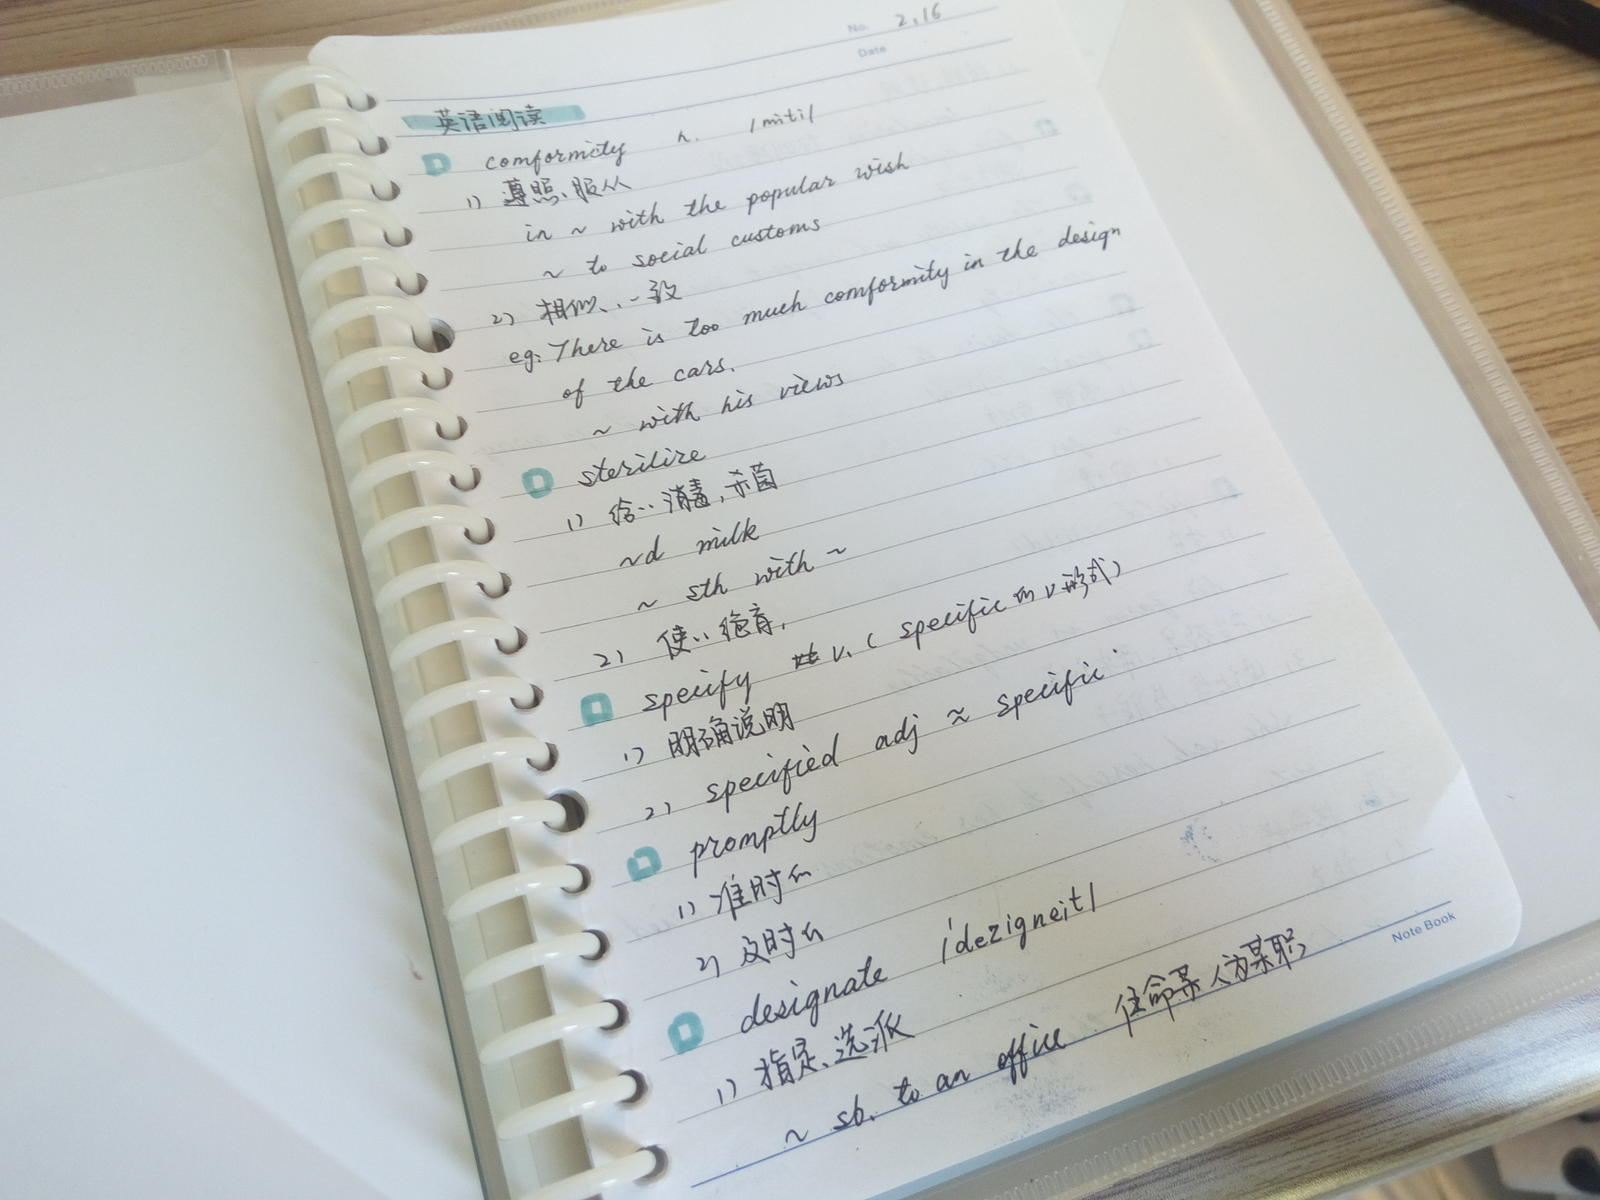 No. 2.16
Date
英语阅读
conformity n. /miti/
1) 遵照、服从
in ~ with the popular wish
~ to social customs
2) 相似、一致
eg: There is too much conformity in the design
of the cars.
~ with his views
sterilize
1) 给.. 消毒,杀菌
~d milk
~ sth with ~
2) 使.. 绝育,
specify v. ( specific 的 v 形式)
1) 明确说明
2) specified adj ≈ specific
promptly
1) 准时的
2) 及时的
designate /'dezigneit/
1) 指定、选派
~ sb. to an office 任命某人为某职
Note Book